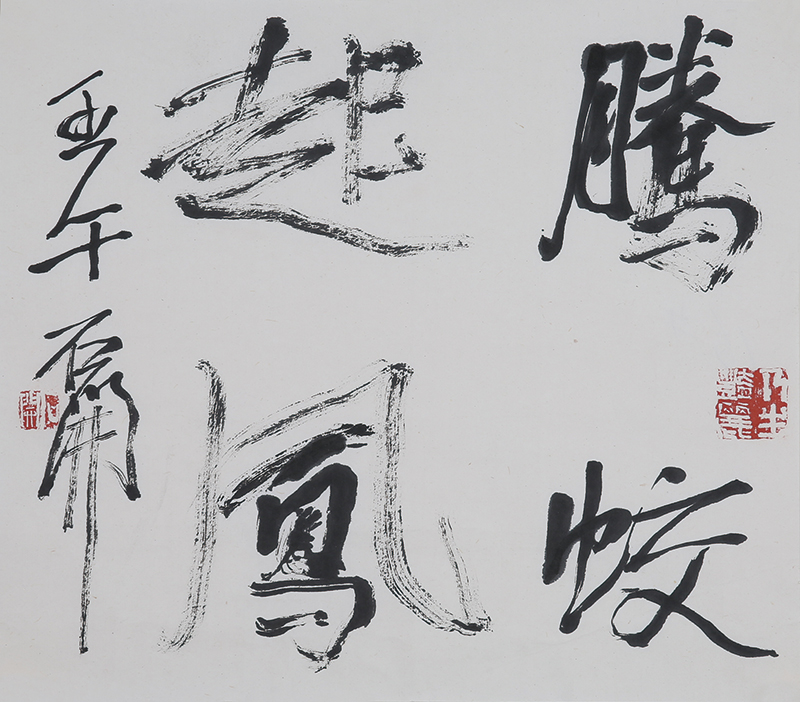 騰蛟
起鳳
壬午 石開
石開